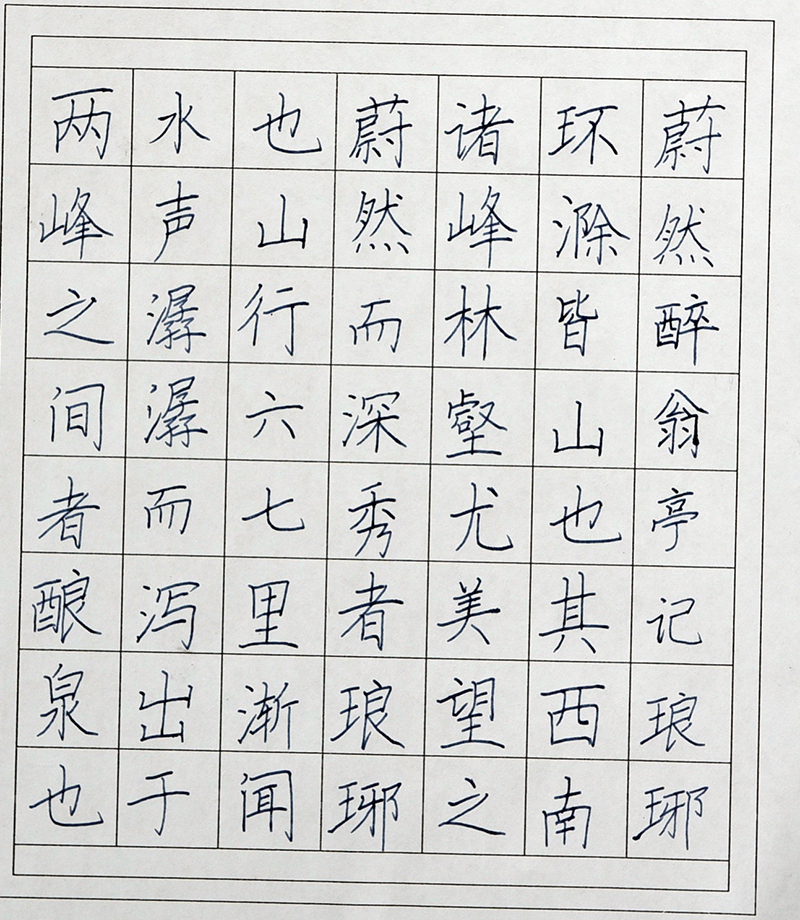 蔚然醉翁亭记琅琊
环滁皆山也其西南
诸峰林壑尤美望之
蔚然而深秀者琅琊
也山行六七里渐闻
水声潺潺而泻出于
两峰之间者酿泉也